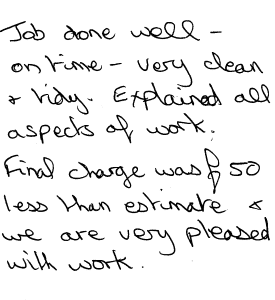 Job done well -
on time - very clean
& tidy. Explained all
aspects of work.
Final charge was £50
less than estimate &
we are very pleased
with work.